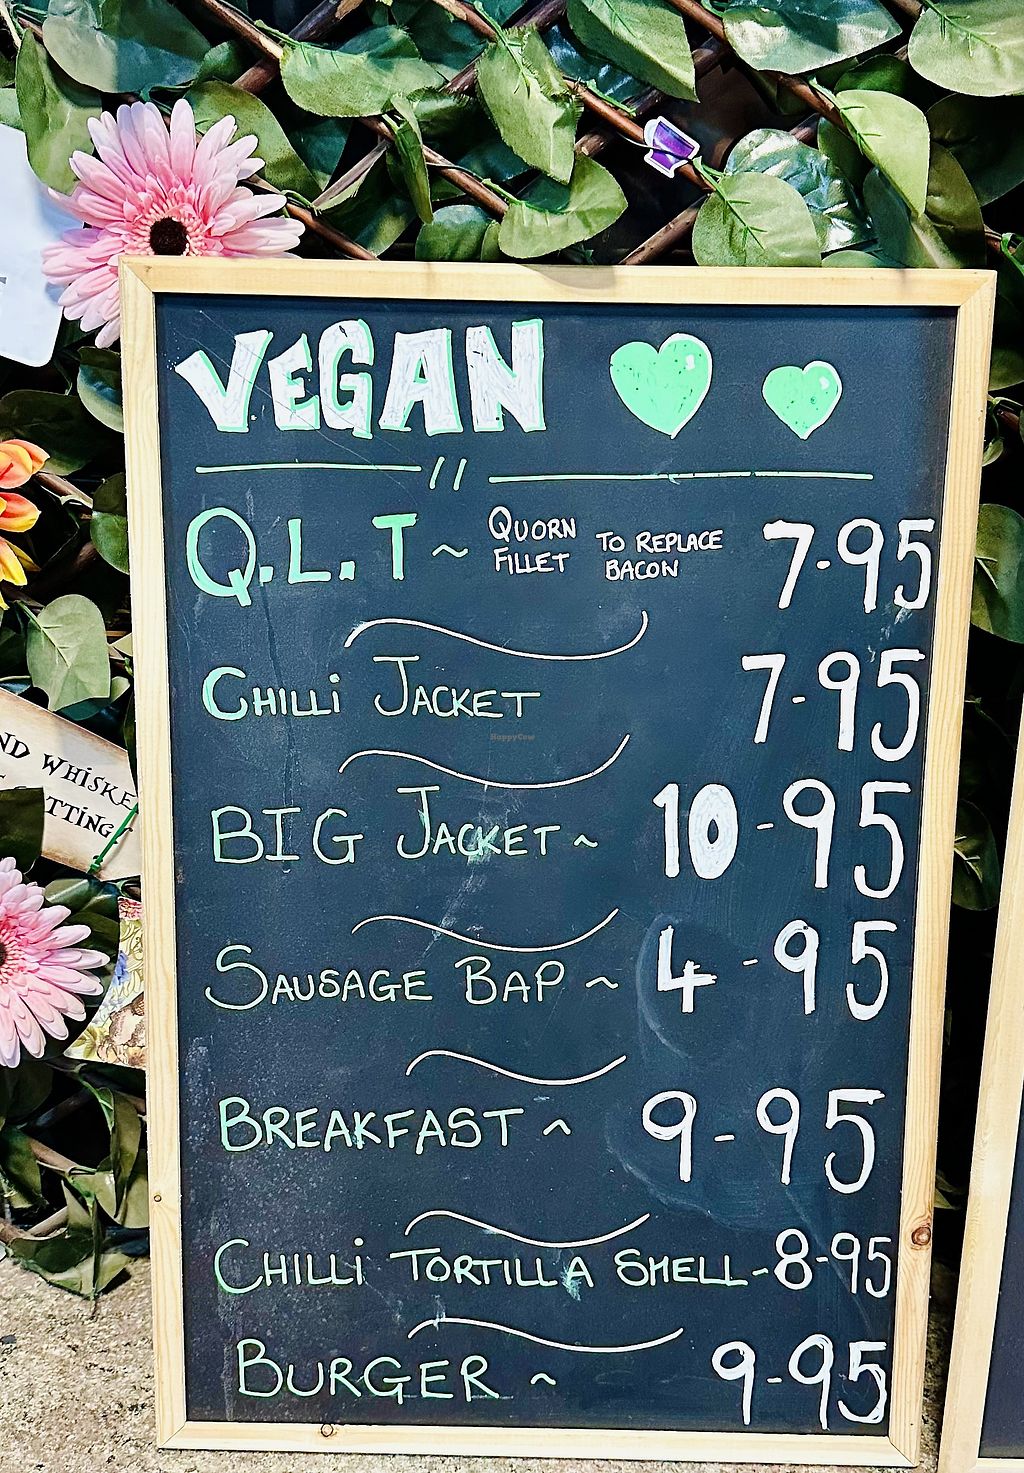 VEGAN
Q.L.T ~ QUORN FILLET TO REPLACE BACON 7-95
CHILLI JACKET 7-95
HappyCow
BIG JACKET ~ 10-95
SAUSAGE BAP ~ 4-95
BREAKFAST ~ 9-95
CHILLI TORTILLA SHELL - 8-95
BURGER ~ 9-95
ND WHISKE
TTING